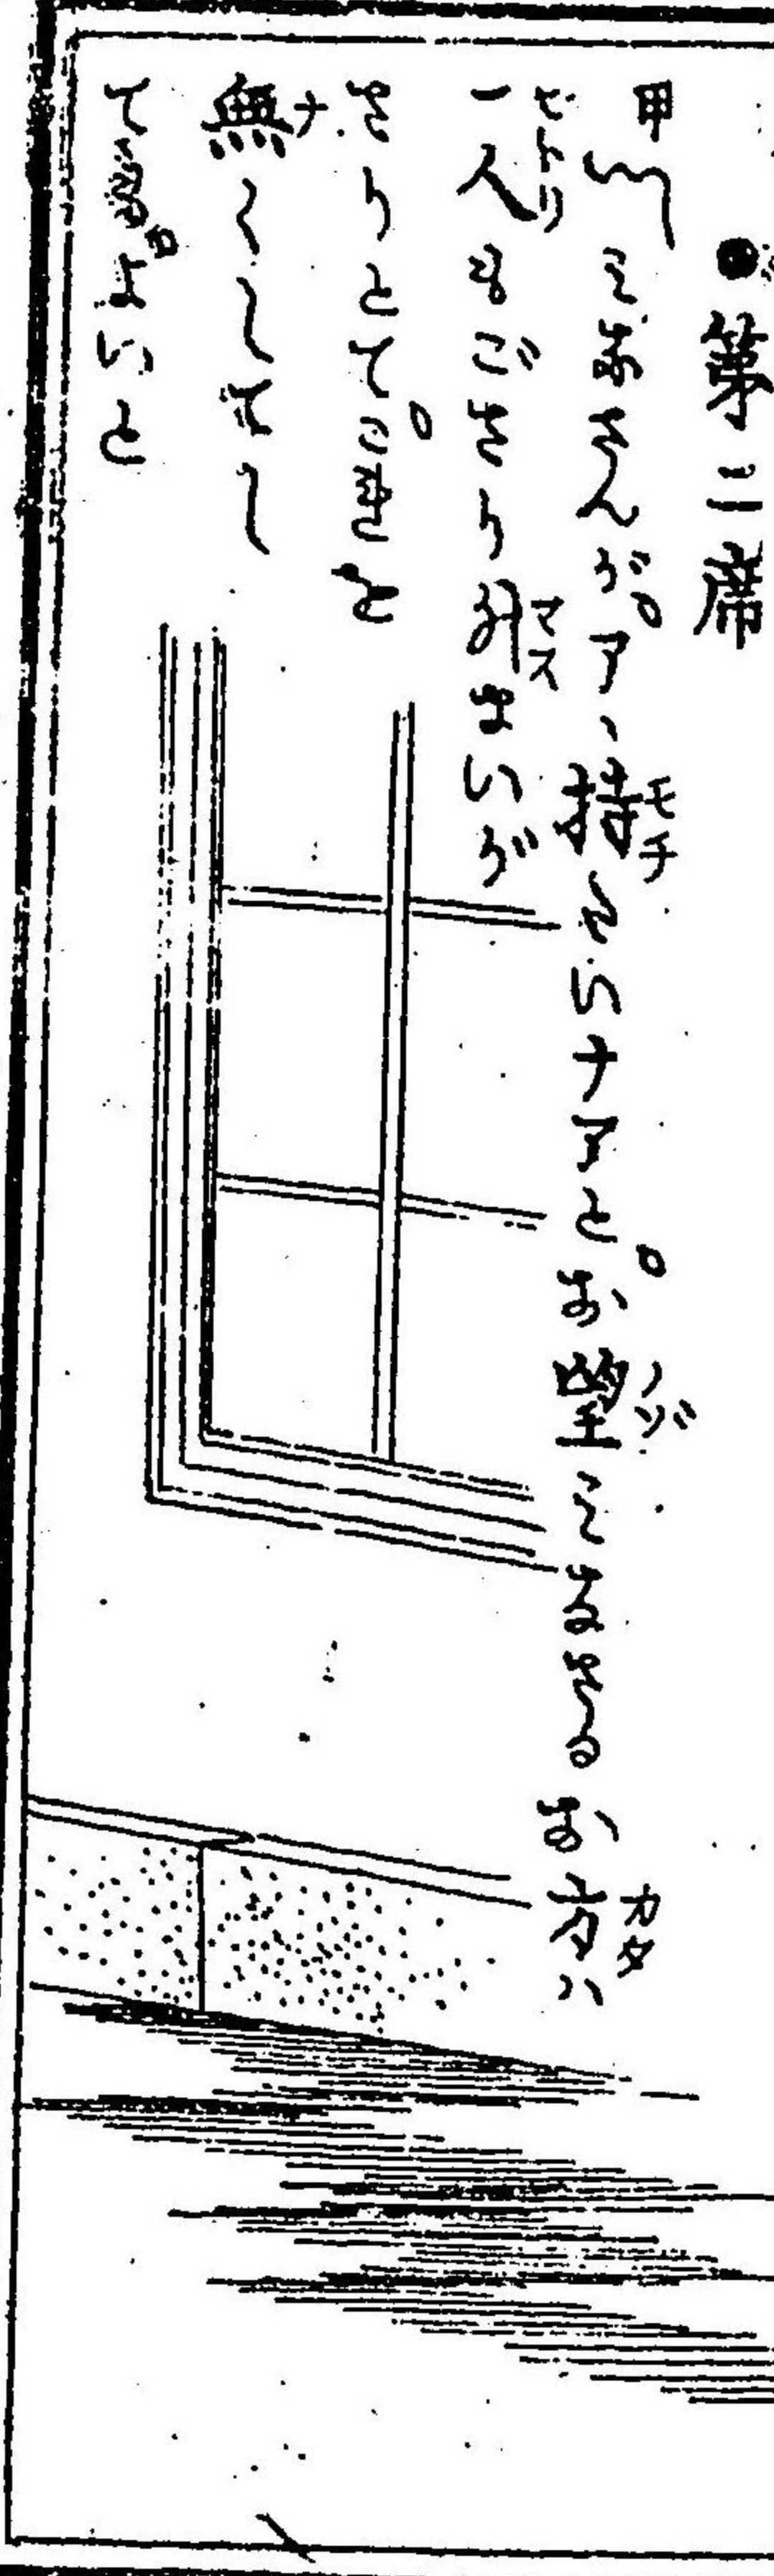 ●第二席
甲〽ミなさんが。アヽ持たいナアと。お望ミなさるお方ハ
一人もござり升まいが
さりとて。これを
無くしまし
ても。よいと